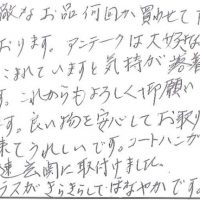 敵なお品何回か買わせて
おります。アンテークは大好き
こまれていますと気持が落着
す。これからもよろしく御願い
す。良い物を安心してお取り
来てうれしいです。コートハンガ
速玄関に取付けました。
ラスがきらきらしてはなやかです。